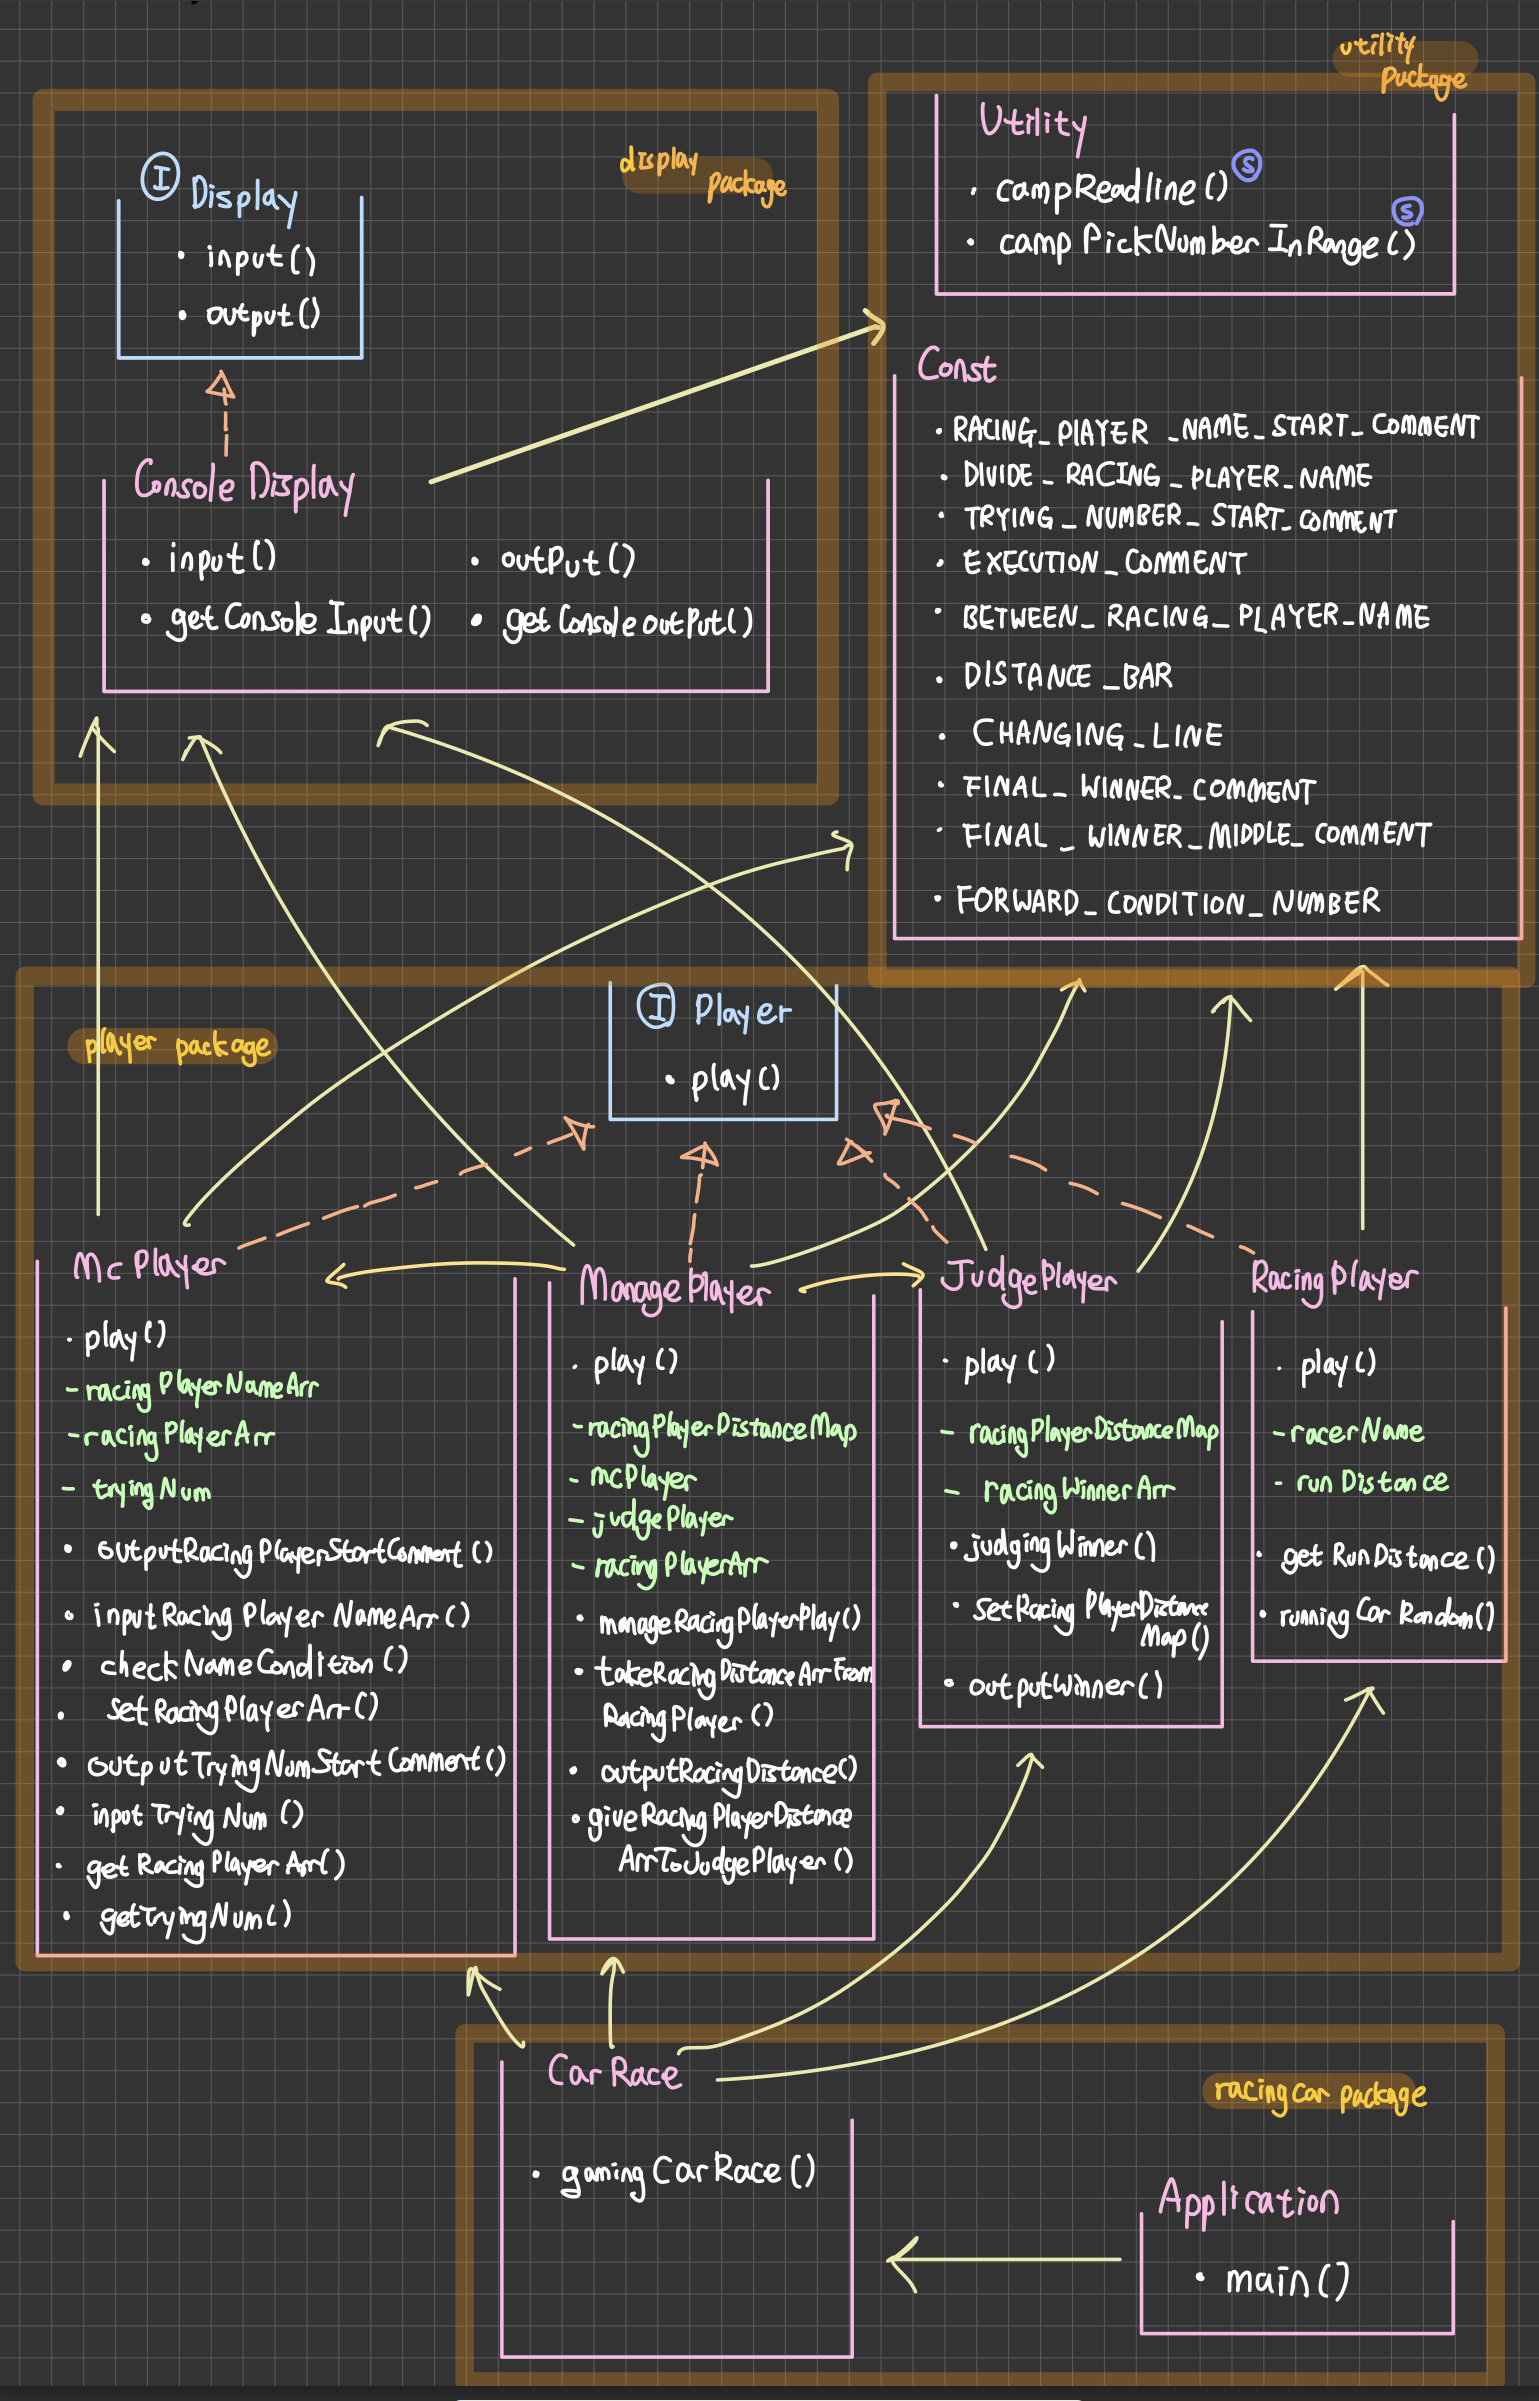 utility
puckage
Utility
· campReadline() Ⓢ
· camp PickNumber InRange() Ⓢ
display
package
Ⓘ Display
· input()
· output()
Console Display
· input()
· outPut()
· getConsole Input()
· getConsole outPut()
Const
· RACING_PLAYER_NAME_START_COMMENT
· DIVIDE_RACING_PLAYER_NAME
· TRYING_NUMBER_START_COMMENT
· EXECUTION_COMMENT
· BETWEEN_RACING_PLAYER_NAME
· DISTANCE_BAR
· CHANGING_LINE
· FINAL_WINNER_COMMENT
· FINAL_WINNER_MIDDLE_COMMENT
· FORWARD_CONDITION_NUMBER
player package
Ⓘ Player
· play()
Mc Player
· play()
- racingPlayerNameArr
- racingPlayerArr
- tryingNum
· outputRacingPlayerStartComment()
· inputRacingPlayerNameArr()
· checkNameCondition()
· setRacingPlayerArr()
· outputTryingNumStartComment()
· inputTryingNum()
· getRacingPlayerArr()
· getTryingNum()
ManagePlayer
· play()
- racingPlayerDistanceMap
- mcPlayer
- judgePlayer
- racingPlayerArr
· manageRacingPlayerPlay()
· takeRacingDistanceArrFrom
RacingPlayer()
· outputRacingDistance()
· giveRacingPlayerDistance
ArrToJudgePlayer()
JudgePlayer
· play()
- racingPlayerDistanceMap
- racingWinnerArr
· judgingWinner()
· setRacingPlayerDistance
Map()
· outputWinner()
RacingPlayer
· play()
- racerName
- runDistance
· getRunDistance()
· runningCarRandom()
Car Race
· gamingCarRace()
racingcar package
Application
· main()